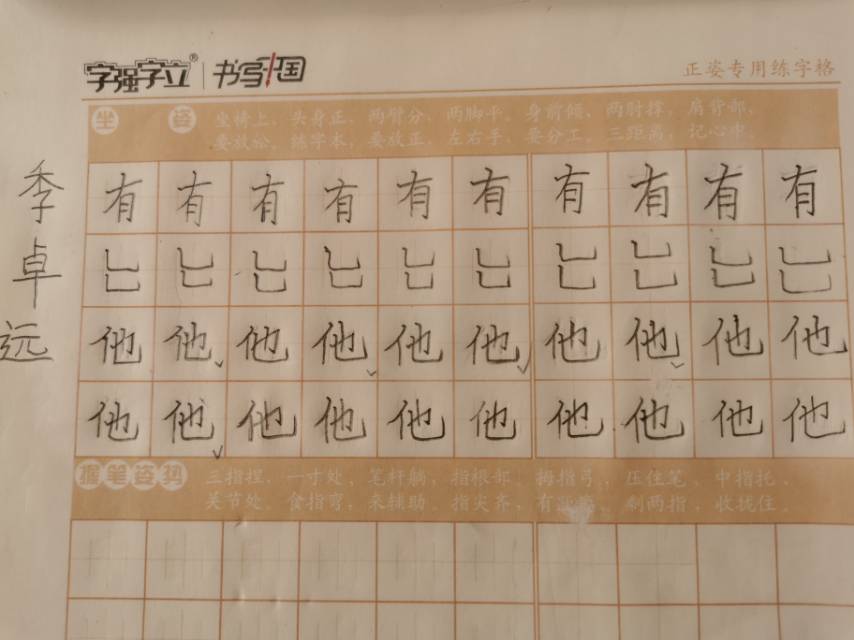 字强字立® 书写中国
正姿专用练字格
坐姿 坐椅上、头身正、两臂分、两脚平。身前倾、两肘撑、肩背部、
要放松。练字本、要放正。左右手、要分工。三距离、记心中。
季卓远
有 有 有 有 有 有 有 有 有 有
他 他 他 他 他 他 他 他 他 他
他 他 他 他 他 他 他 他 他 他
握笔姿势 三指捏、一寸处、笔杆躺、指根部。拇指弓、压住笔、中指托、
关节处。食指弯、来辅助。指尖齐、有 剩两指、收拢住。